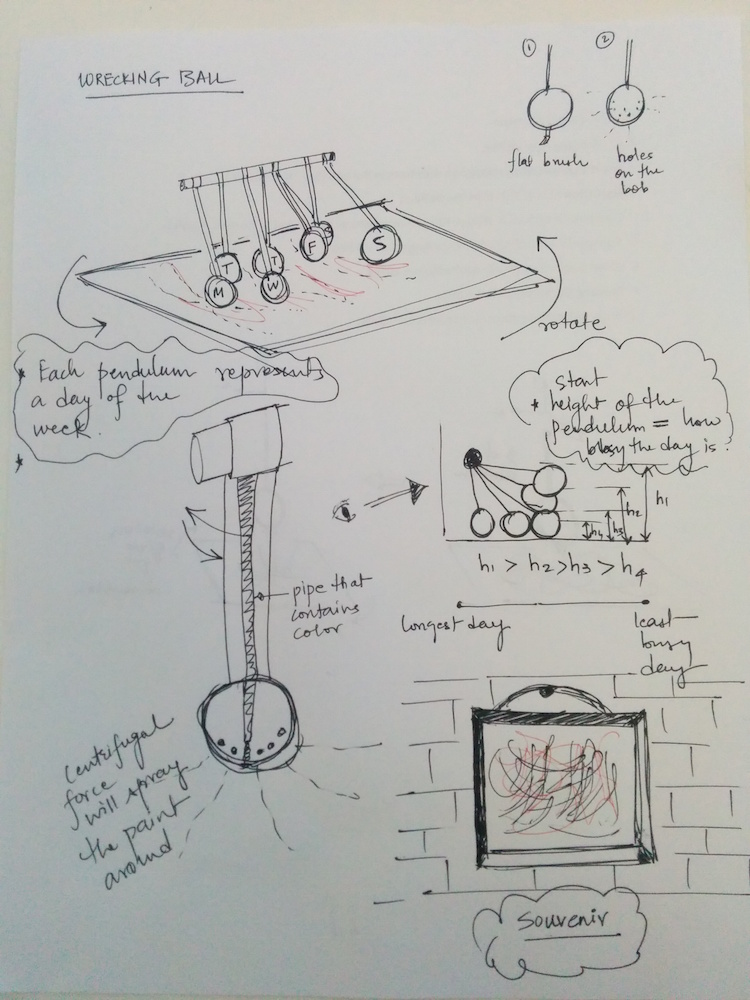 WRECKING BALL
①
②
flat brush
holes
on the
bob
T
T
F
S
M
W
rotate
* Each pendulum represents
a day of the
week.
*
start
* height of the
pendulum = how
busy the day is.
h1
h2
h3
h4
h1 > h2 > h3 > h4
pipe that
contains
color
longest day
least
busy
day
centrifugal
force
will spray
the paint
around
Souvenir